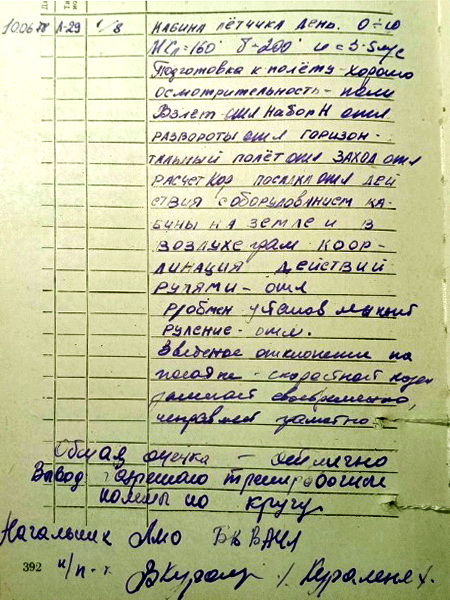 10.06.78 Л-29 1/8 КАБИНА ЛЁТЧИКА ДЕНЬ. 0÷10
МСл=160° δ-200° u=3-5м/с
Подготовка к полёту - хорошо
осмотрительность - полн
Взлет - отл Набор Н отл
РАЗВОРОТЫ отл ГОРИЗОН-
ТАЛЬНЫЙ ПОЛЁТ отл ЗАХОД отл
РАСЧЕТ хор ПОСАДКА отл ДЕЙ
СТВИЯ С ОБОРУДОВАНИЕМ КА-
БИНЫ НА ЗЕМЛЕ И В
ВОЗДУХЕ грам КООР-
ДИНАЦИЯ ДЕЙСТВИЙ
РУЛЯМИ - отл
Р/обмен установленный
РУЛЕНИЕ - отл.
Введеное отклонение на
посадке - скоростной козел
замечает своевременно,
исправляет грамотно
Общая оценка - отлично
Вывод: разрешаю тренировочные
полёты по кругу
Начальник ЛМО БВВАУЛ
392 п/п-к